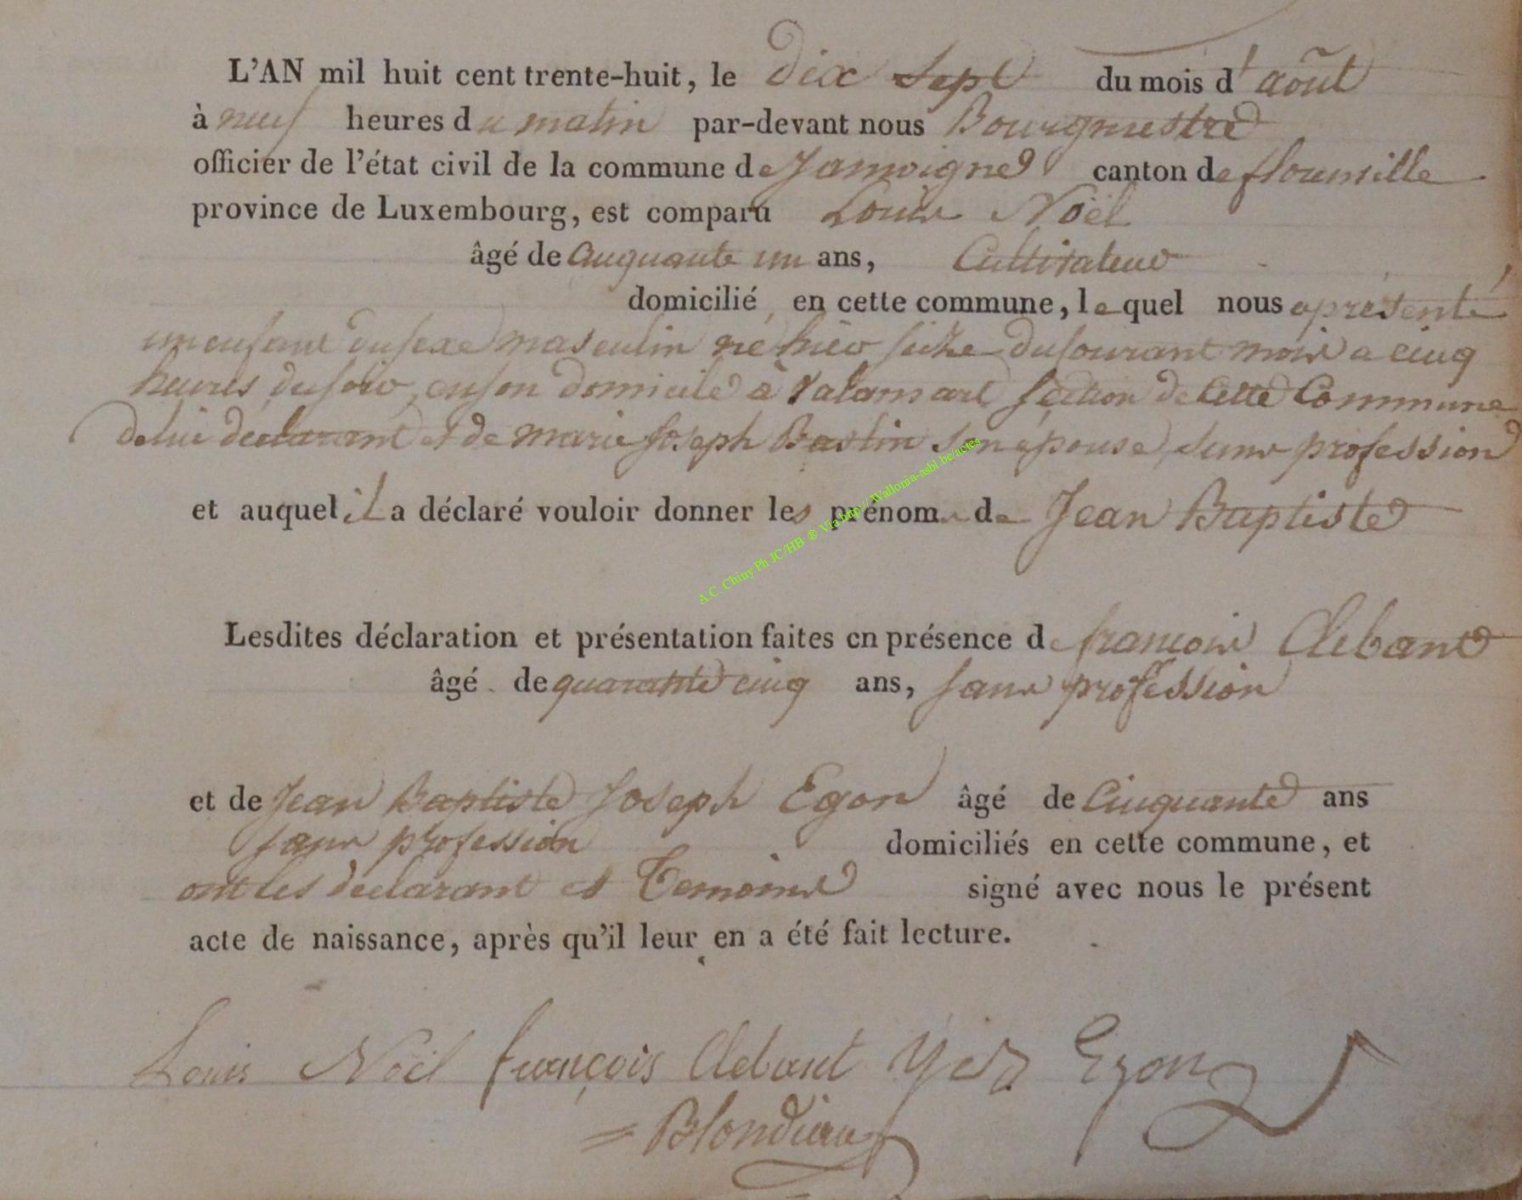 L'AN mil huit cent trente-huit, le dix sept du mois d'août
à neuf heures du matin par-devant nous Bourgmestre
officier de l'état civil de la commune de Jamoigne canton de florenville
province de Luxembourg, est comparu Louis Noël
âgé de cinquante un ans, Cultivateur
domicilié en cette commune, lequel nous a présenté
un enfant du sexe masculin né hier seize du courant mois a cinq
heures du soir, en son domicile à Valansart section de cette Commune
de lui declarant et de marie joseph Bastin son épouse, sans profession
et auquel il a déclaré vouloir donner les prénoms de Jean Baptiste
A.C. Chiny Ph JC/HB ® Via http://Wallonia-asbl.be/actes
Lesdites déclaration et présentation faites en présence de francois Clebant
âgé de quarante cinq ans, sans profession
et de Jean Baptiste Joseph Egon âgé de Cinquante ans
sans profession domiciliés en cette commune, et
ont les declarant et Temoins signé avec nous le présent
acte de naissance, après qu'il leur en a été fait lecture.
Louis Noël françois Clebant Egon
Blondiau